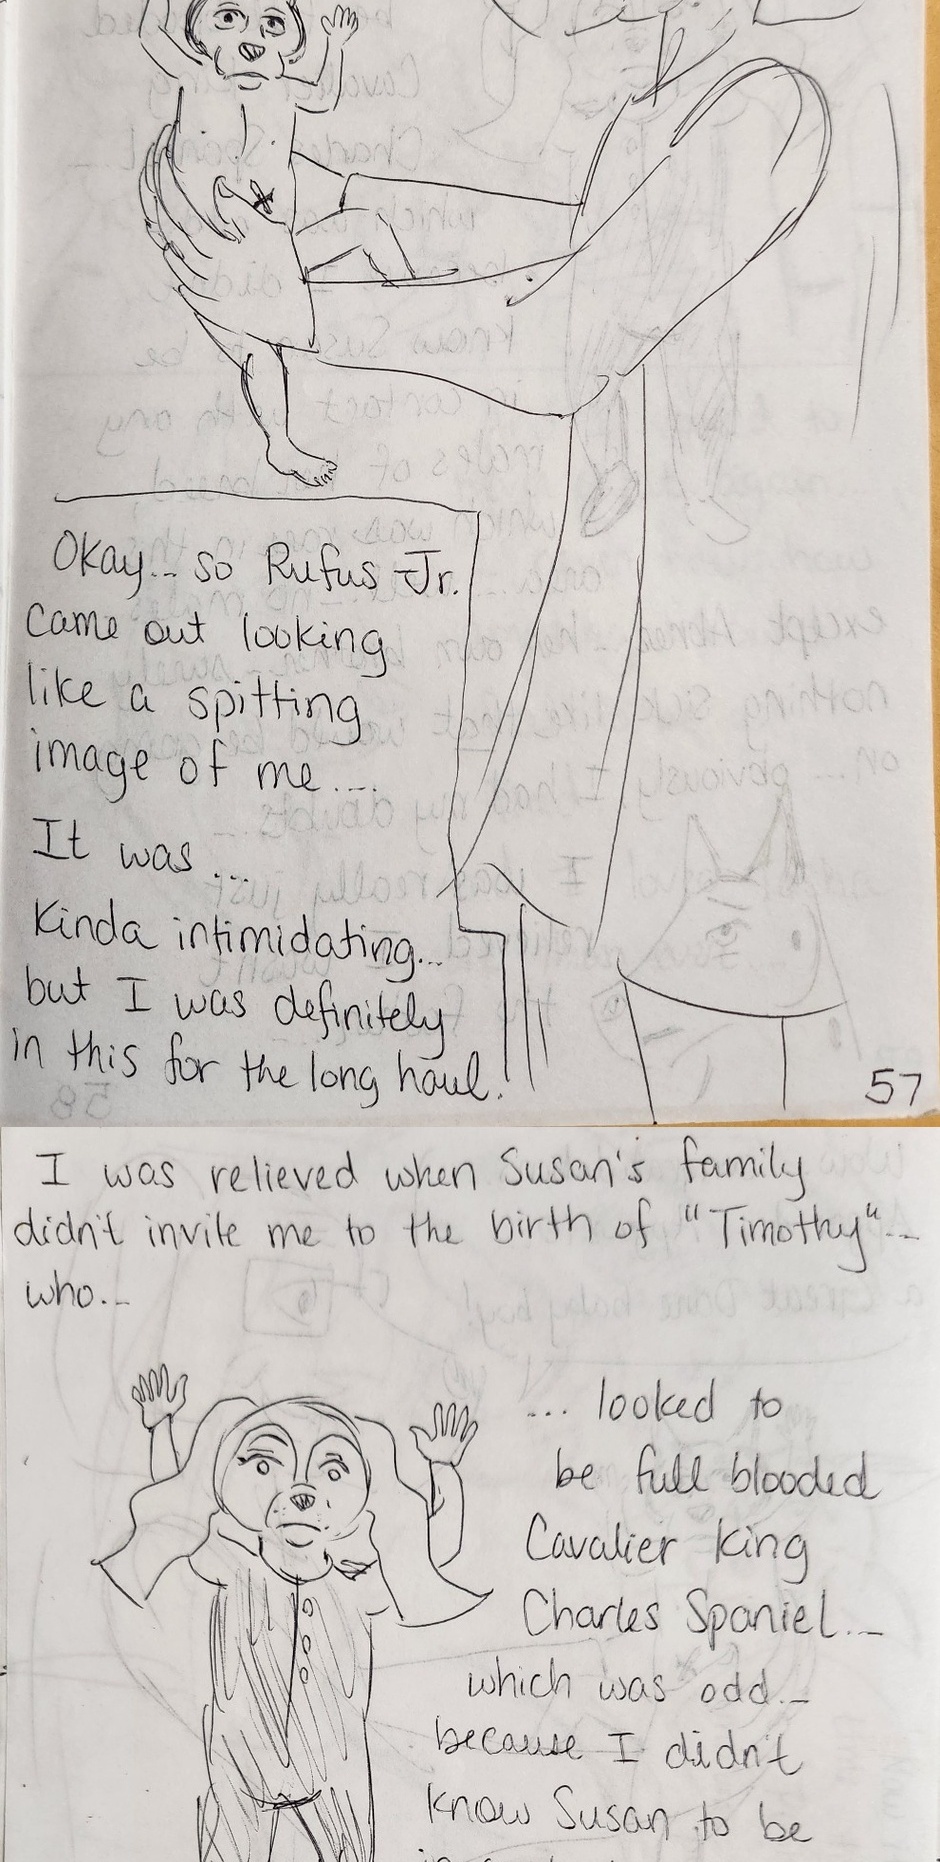 Okay... so Rufus Jr.
came out looking
like a spitting
image of me....
It was ...
kinda intimidating...
but I was definitely
in this for the long haul.
57
I was relieved when Susan's family
didn't invite me to the birth of "Timothy"...
who...
... looked to
be full blooded
Cavalier King
Charles Spaniel...
which was odd...
because I didn't
know Susan to be